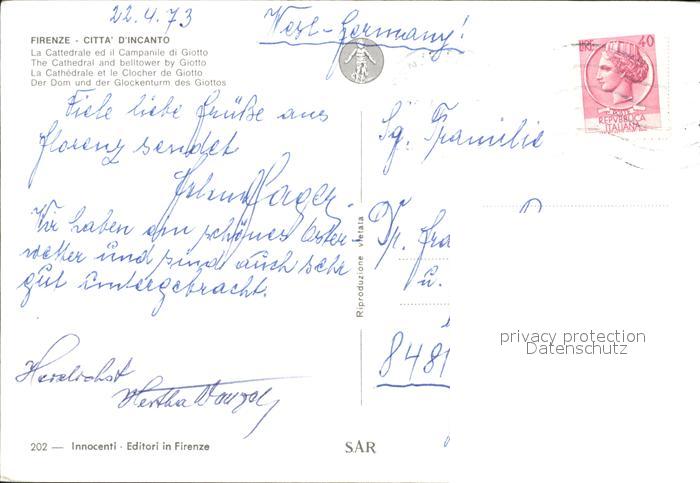 22.4.73
West-Germany!
FIRENZE - CITTA' D'INCANTO
La Cattedrale ed il Campanile di Giotto
The Cathedral and belltower by Giotto
La Cathédrale et le Clocher de Giotto
Der Dom und der Glockenturm des Giottos
LIRE 40
POSTE
REPVBBLICA
ITALIANA
Viele liebe Grüße aus
Florenz sendet
Wir haben ein schönes Oster-
wetter und sind auch sehr
gut untergebracht.
Herzlichst
Hertha
Sg. Familie
Dr. Fra
u.
8481
Riproduzione vietata
privacy protection
Datenschutz
202 — Innocenti - Editori in Firenze
SAR